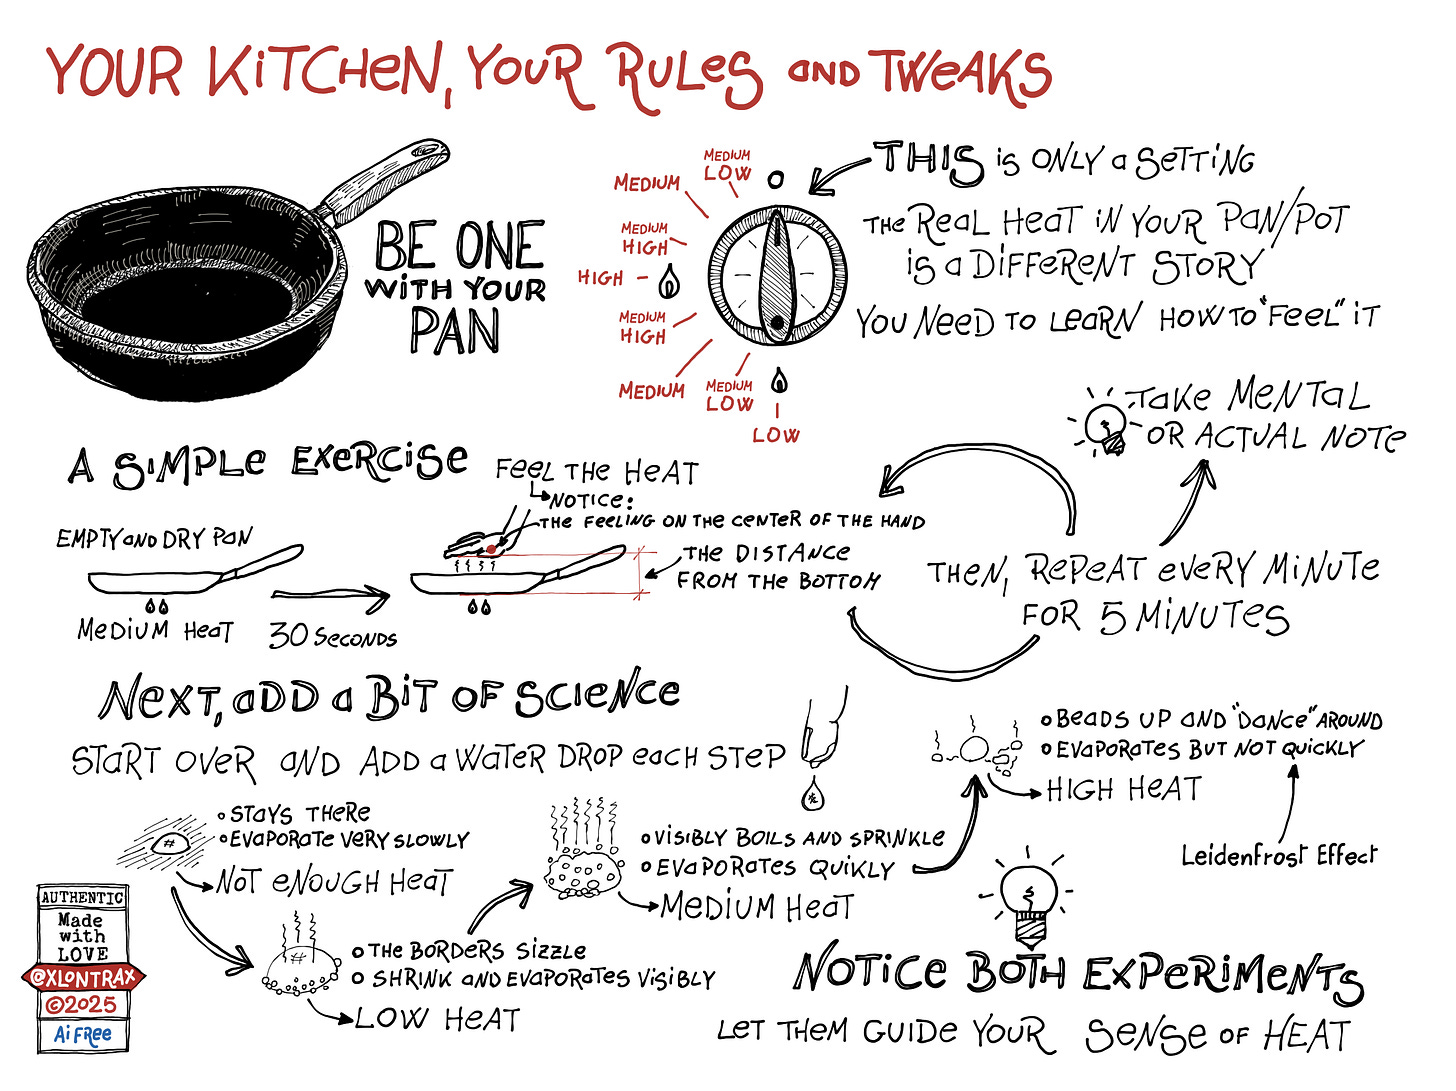 YOUR KiTCHeN, YOUR RULeS aND TWeAKS
BE ONE
WiTH YOUR
PAN
MEDIUM
LOW
MEDIUM
MEDIUM
HIGH
HIGH
MEDIUM
HIGH
MEDIUM
MEDIUM
LOW
LOW
THIS is ONLY a SeTTiNG
THe ReaL HeaT iN YOUR PaN/POT
iS a DiFFeReNT STORY
YOU NeeD TO LeaRN HOW TO "FeeL" iT
TaKe MeNTaL
OR ACTUAL NOTe
A SiMPLe EXeRCiSe
FeeL THe HeAT
NOTiCe:
THe FeeLiNG ON THe CeNTeR OF THe HAND
THe DiSTANCe
FROM THe BOTTOM
EMPTY aND DRY PaN
MeDiUM HeaT
30 SeCONDS
THeN, RePeAT eVeRY MiNUTe
FOR 5 MiNUTeS
NeXT, aDD a BiT OF SCieNCe
STaRT OVeR aND ADD a WaTeR DROP eaCH STeP
STAYS THeRe
EVaPORaTe VeRY SLOWLY
NOT eNOUGH HeaT
THe BORDeRS SiZZLe
SHRiNK aND EVaPORaTeS ViSiBLY
LOW HeaT
ViSiBLY BOiLS AND SPRiNKLe
EVaPORaTeS QUiKLY
MeDiUM HeaT
BeaDS UP aND "DaNCe" AROUND
EVaPORaTeS BUT NOT QUiCKLY
HIGH HeAT
Leidenfrost Effect
NOTiCe BOTH EXPeRiMeNTS
LeT THeM GUiDe YOUR SeNSe OF HEAT
AUTHENTIC
Made
with
LOVE
@XLONTRAX
©2025
Ai FRee